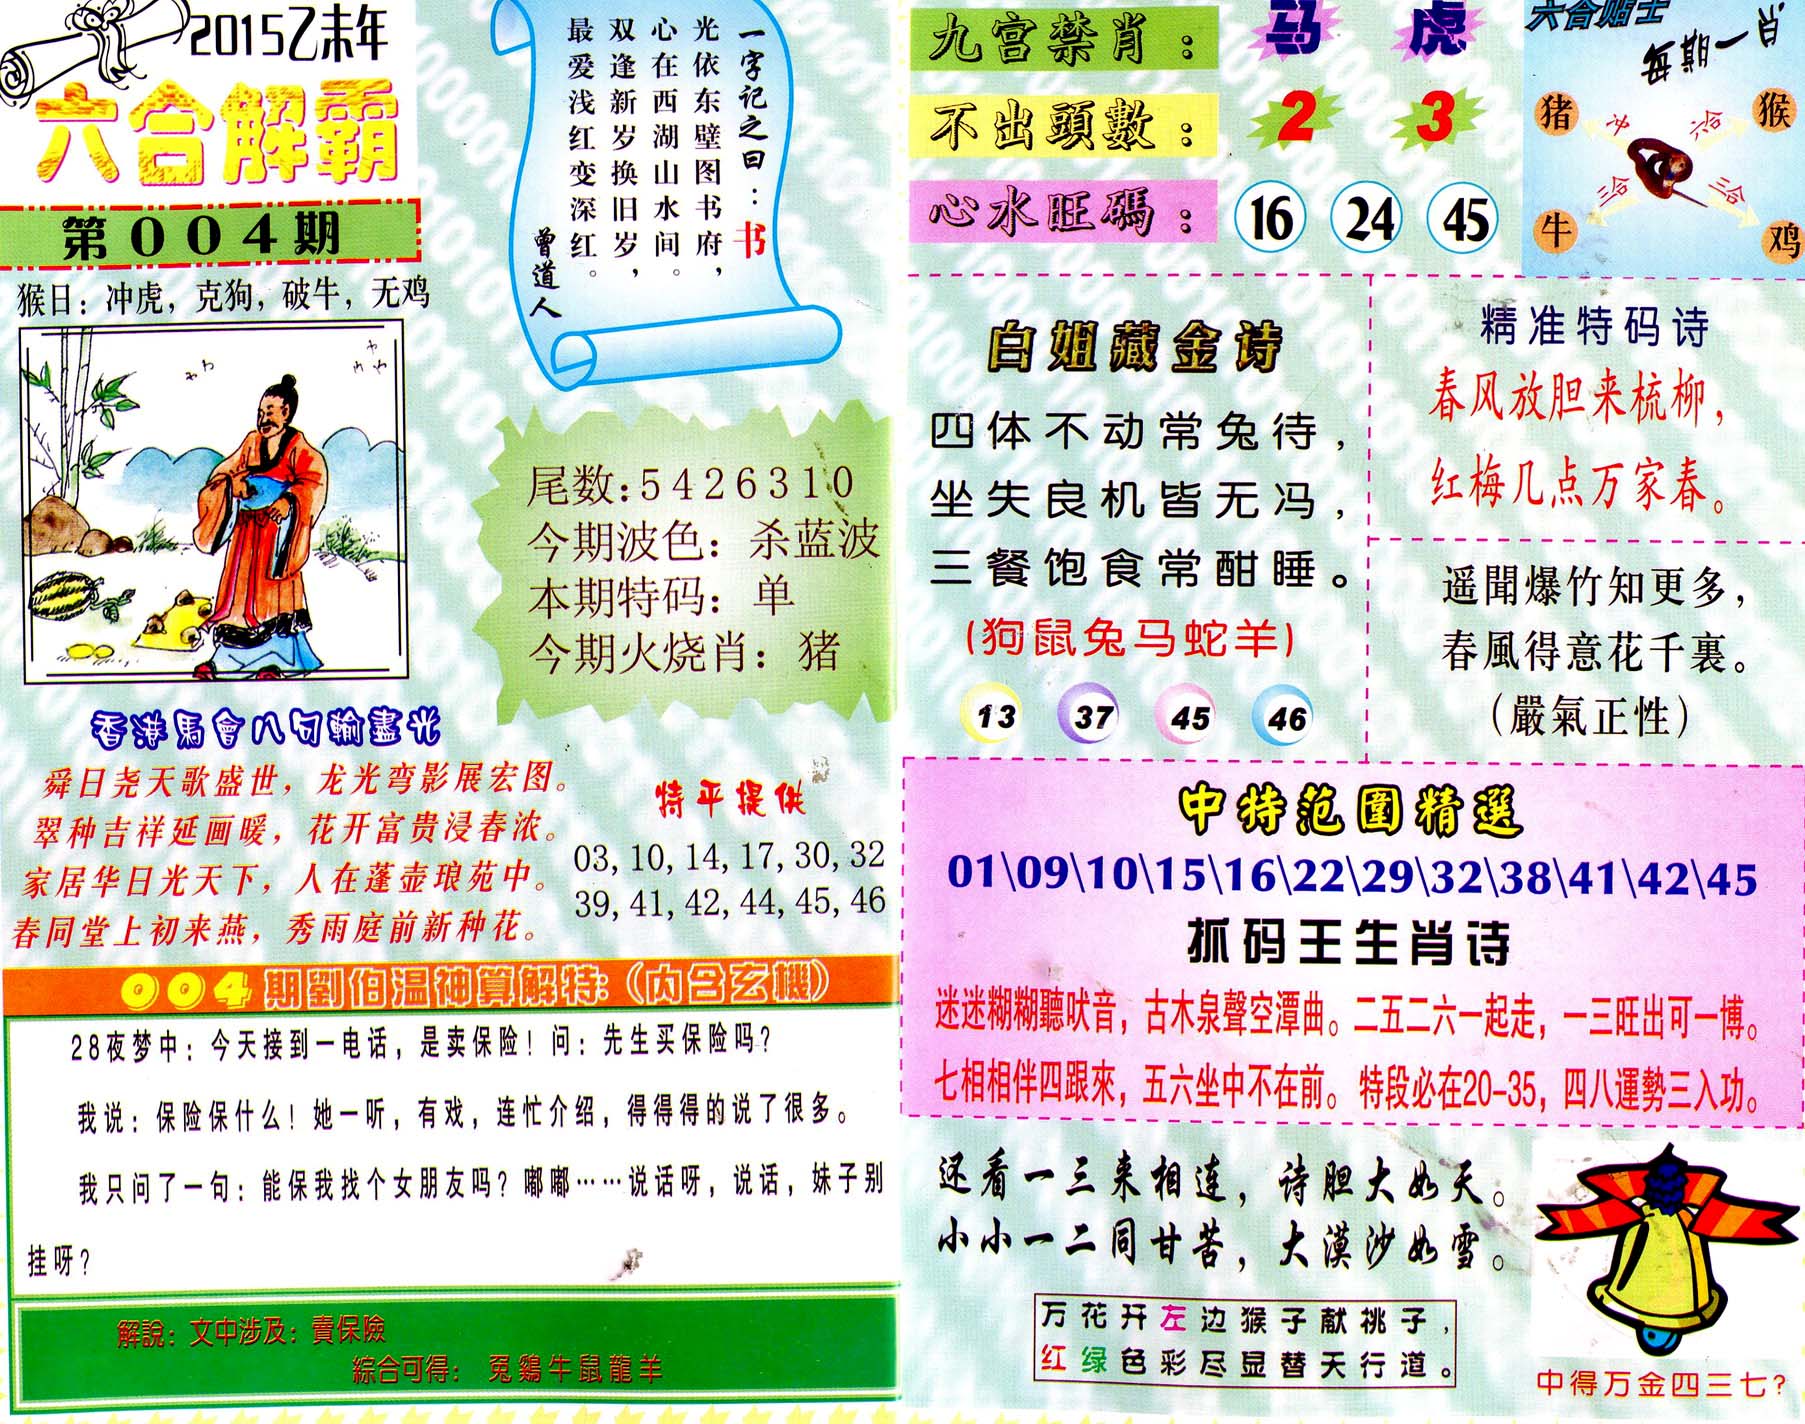 2015乙未年
六合解霸
第004期
猴日：冲虎，克狗，破牛，无鸡
一字记之曰：书
光依东壁图书府，
心在西湖山水间。
双逢新岁换旧岁，
最爱浅红变深红。
曾道人
尾数:5426310
今期波色：杀蓝波
本期特码：单
今期火烧肖：猪
香港馬會八句輸盡光
舜日尧天歌盛世，龙光弯影展宏图。
翠种吉祥延画暖，花开富贵浸春浓。
家居华日光天下，人在蓬壶琅苑中。
春同堂上初来燕，秀雨庭前新种花。
特平提供
03,10,14,17,30,32
39,41,42,44,45,46
004期劉伯温神算解特:（内含玄機）
28夜梦中：今天接到一电话，是卖保险！问：先生买保险吗？
我说：保险保什么！她一听，有戏，连忙介绍，得得得的说了很多。
我只问了一句：能保我找个女朋友吗？嘟嘟……说话呀，说话，妹子别
挂呀？
解說：文中涉及：賣保險
綜合可得：兔鷄牛鼠龍羊
九宫禁肖：马 虎
不出頭數：2 3
心水旺碼：16 24 45
六合贴士
每期一肖
猪 冲 六合 猴
牛 三合 三合 鸡
白姐藏金诗
四体不动常兔待，
坐失良机皆无冯，
三餐饱食常酣睡。
(狗鼠兔马蛇羊)
13 37 45 46
精准特码诗
春风放胆来梳柳，
红梅几点万家春。
遥聞爆竹知更多，
春風得意花千裏。
（嚴氣正性）
中特范圍精選
01\09\10\15\16\22\29\32\38\41\42\45
抓码王生肖诗
迷迷糊糊聽吠音，古木泉聲空潭曲。二五二六一起走，一三旺出可一博。
七相相伴四跟來，五六坐中不在前。特段必在20-35，四八運勢三入功。
还看一三来相连，诗胆大如天。
小小一二同甘苦，大漠沙如雪。
万花开左边猴子献桃子，
红绿色彩尽显替天行道。
中得万金四三七？